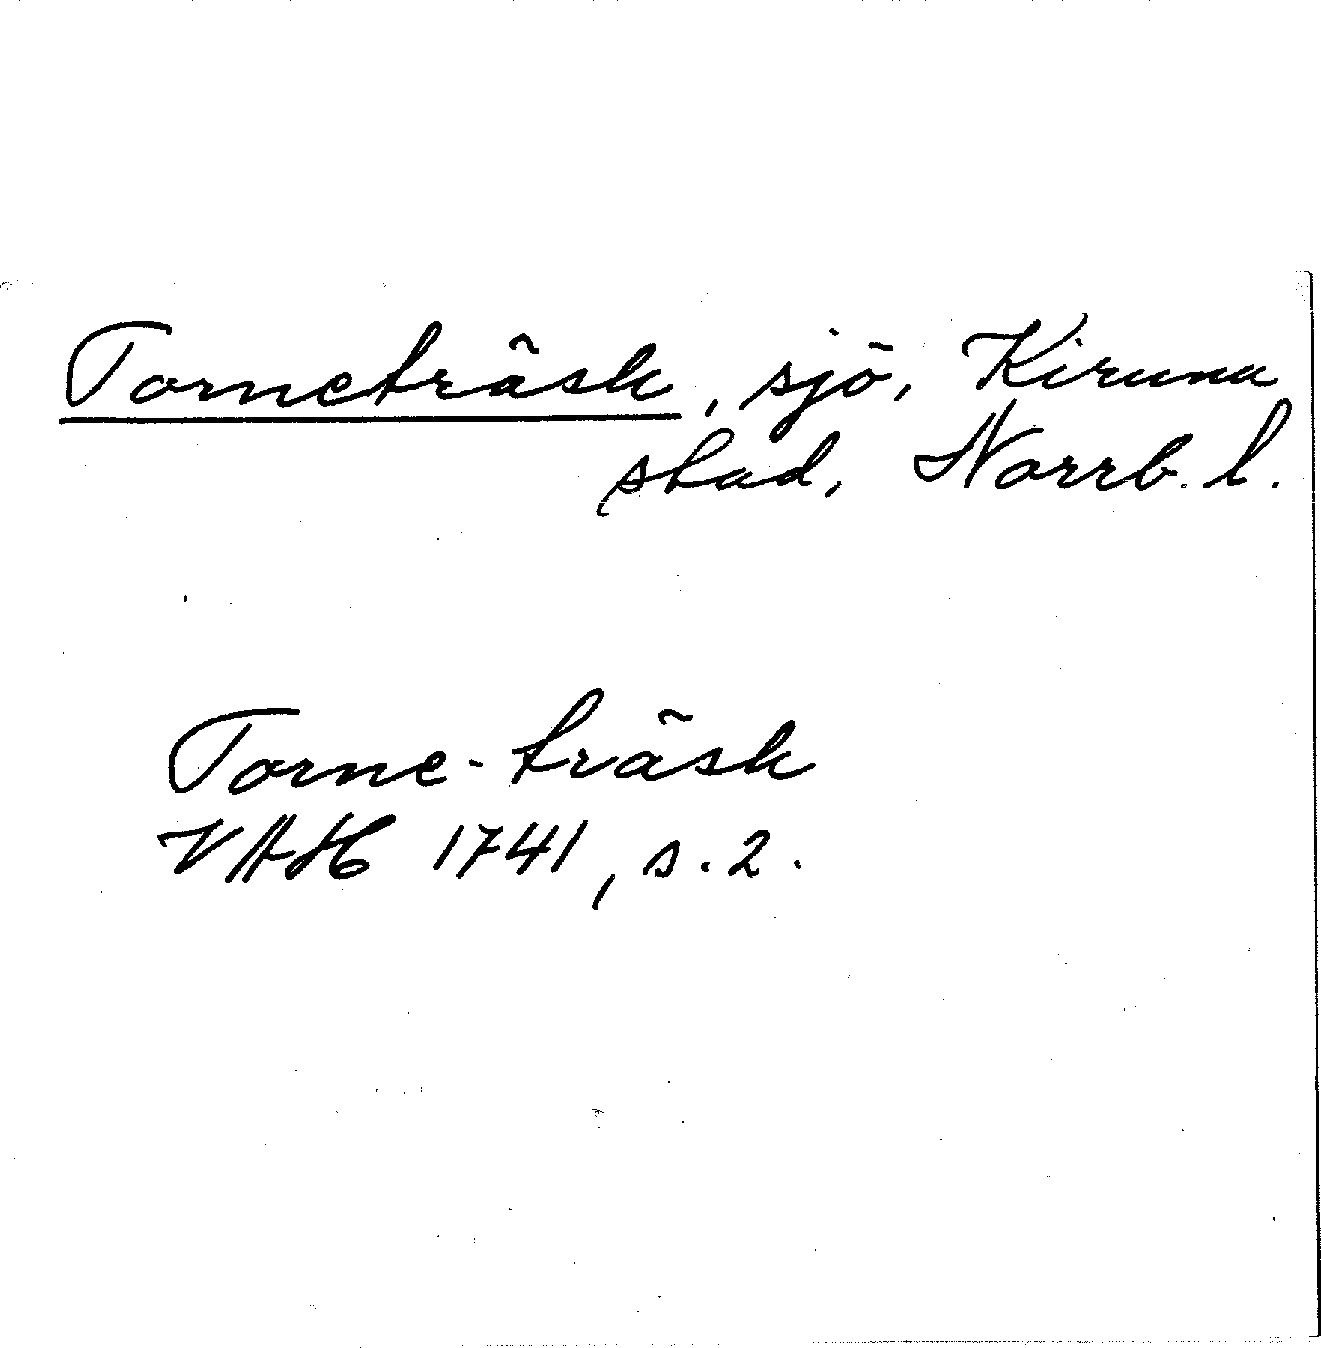 Torneträsk, sjö, Kiruna
stad, Norrb. l.
Torne-träsk
VAH 1741, s. 2.